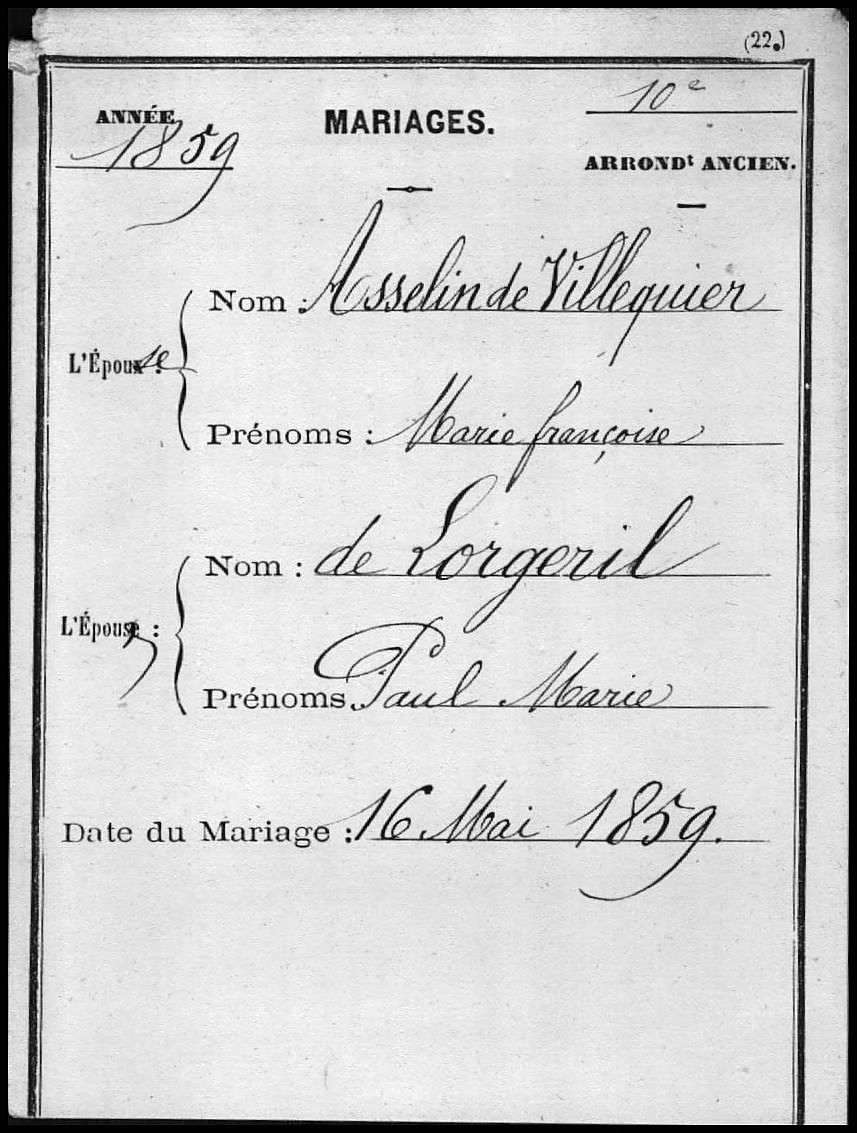 (22.)
ANNÉE
1859
MARIAGES.
10e
ARRONDt ANCIEN.
L'Épouse :
Nom : Asselin de Villequier
Prénoms : Marie françoise
L'Époux :
Nom : de Lorgeril
Prénoms Paul Marie
Date du Mariage : 16 Mai 1859.